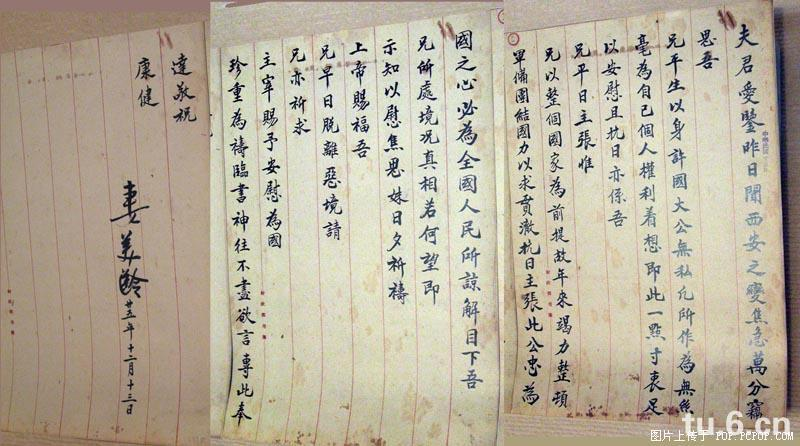 夫君愛鑒昨日聞西安之變焦急萬分竊
思吾
兄平生以身許國大公無私凡所作為無絲
毫為自己個人權利着想即此一點寸衷足
以安慰且抗日亦係吾
兄平日主張惟
兄以整個國家為前提故年來竭力整頓
軍備團結國力以求貫澈抗日主張此公忠為
國之心必為全國人民所諒解目下吾
兄所處境況真相若何望即
示知以慰焦思妹日夕祈禱
上帝賜福吾
兄早日脫離惡境請
兄亦祈求
主宰賜予安慰為國
珍重為禱臨書神往不盡欲言專此奉
達敬祝
康健
妻美齡
廿五年十二月十三日
tu.6.cn
图片上传于 POP.PCPOP.com